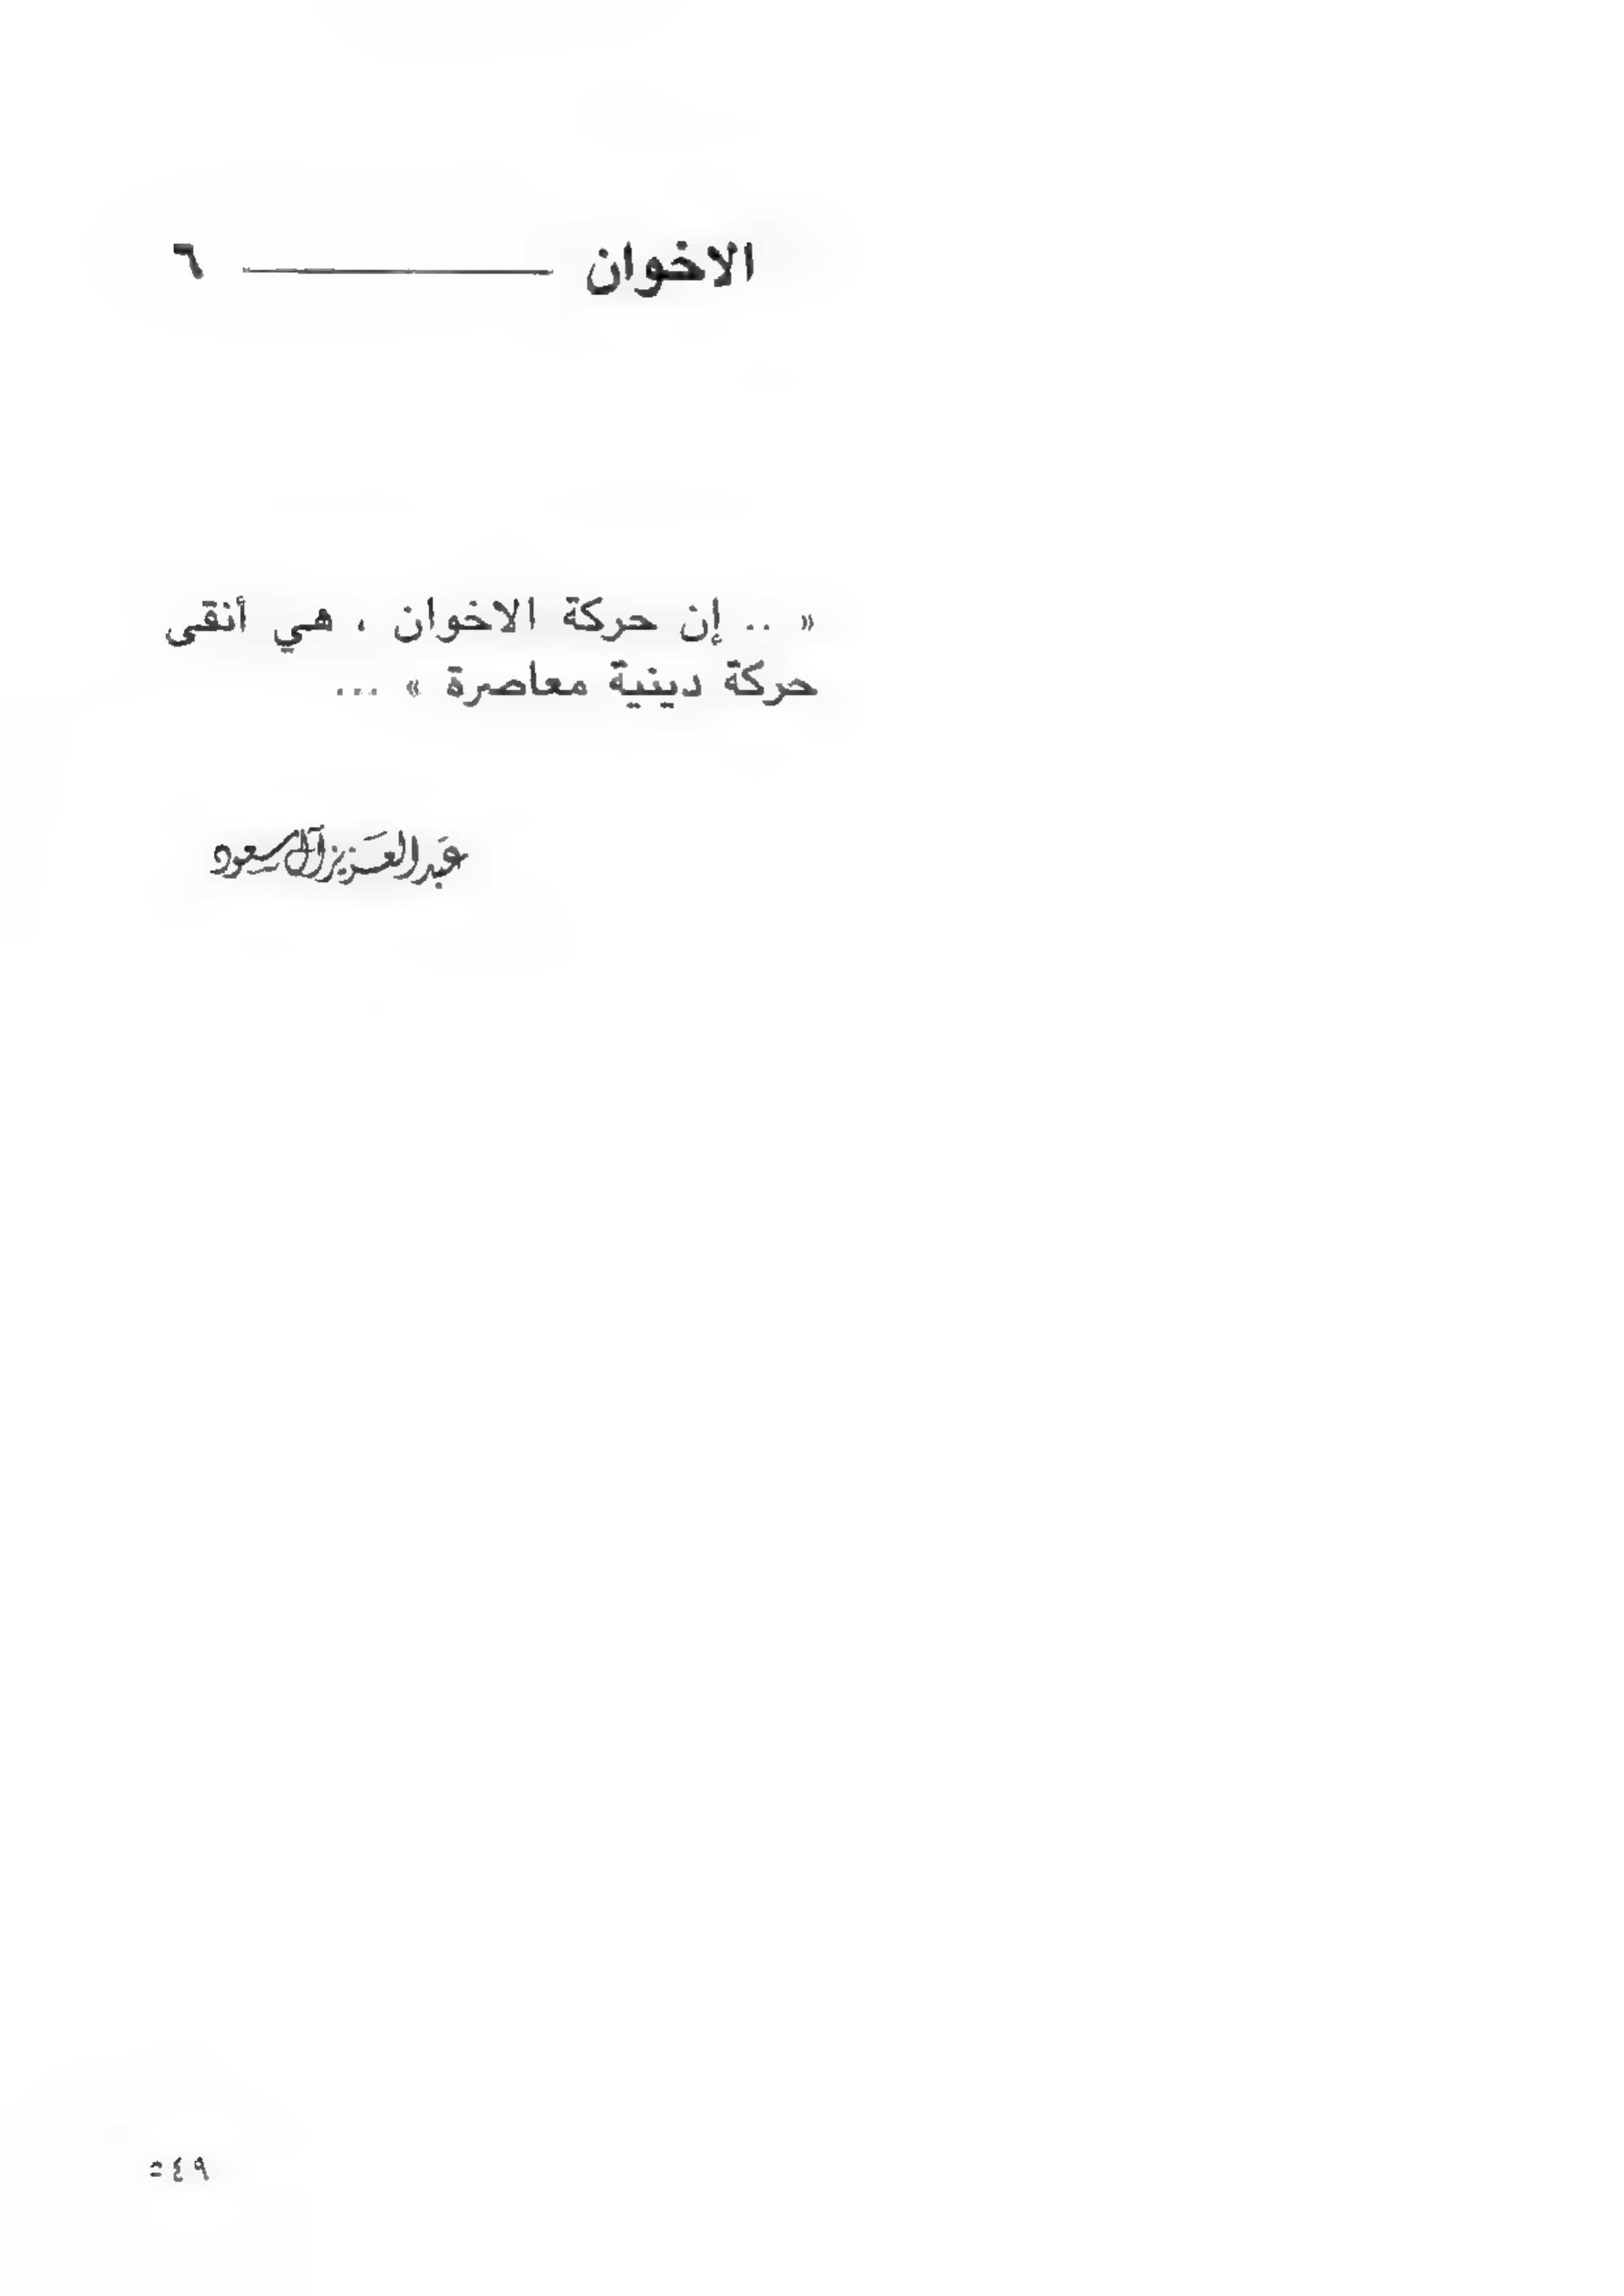 الاخوان ــــــــــ ٦
« .. إن حركة الاخوان ، هي أنقى
حركة دينية معاصرة » ...
عَبدالعَزيز آل سعود
٤٩